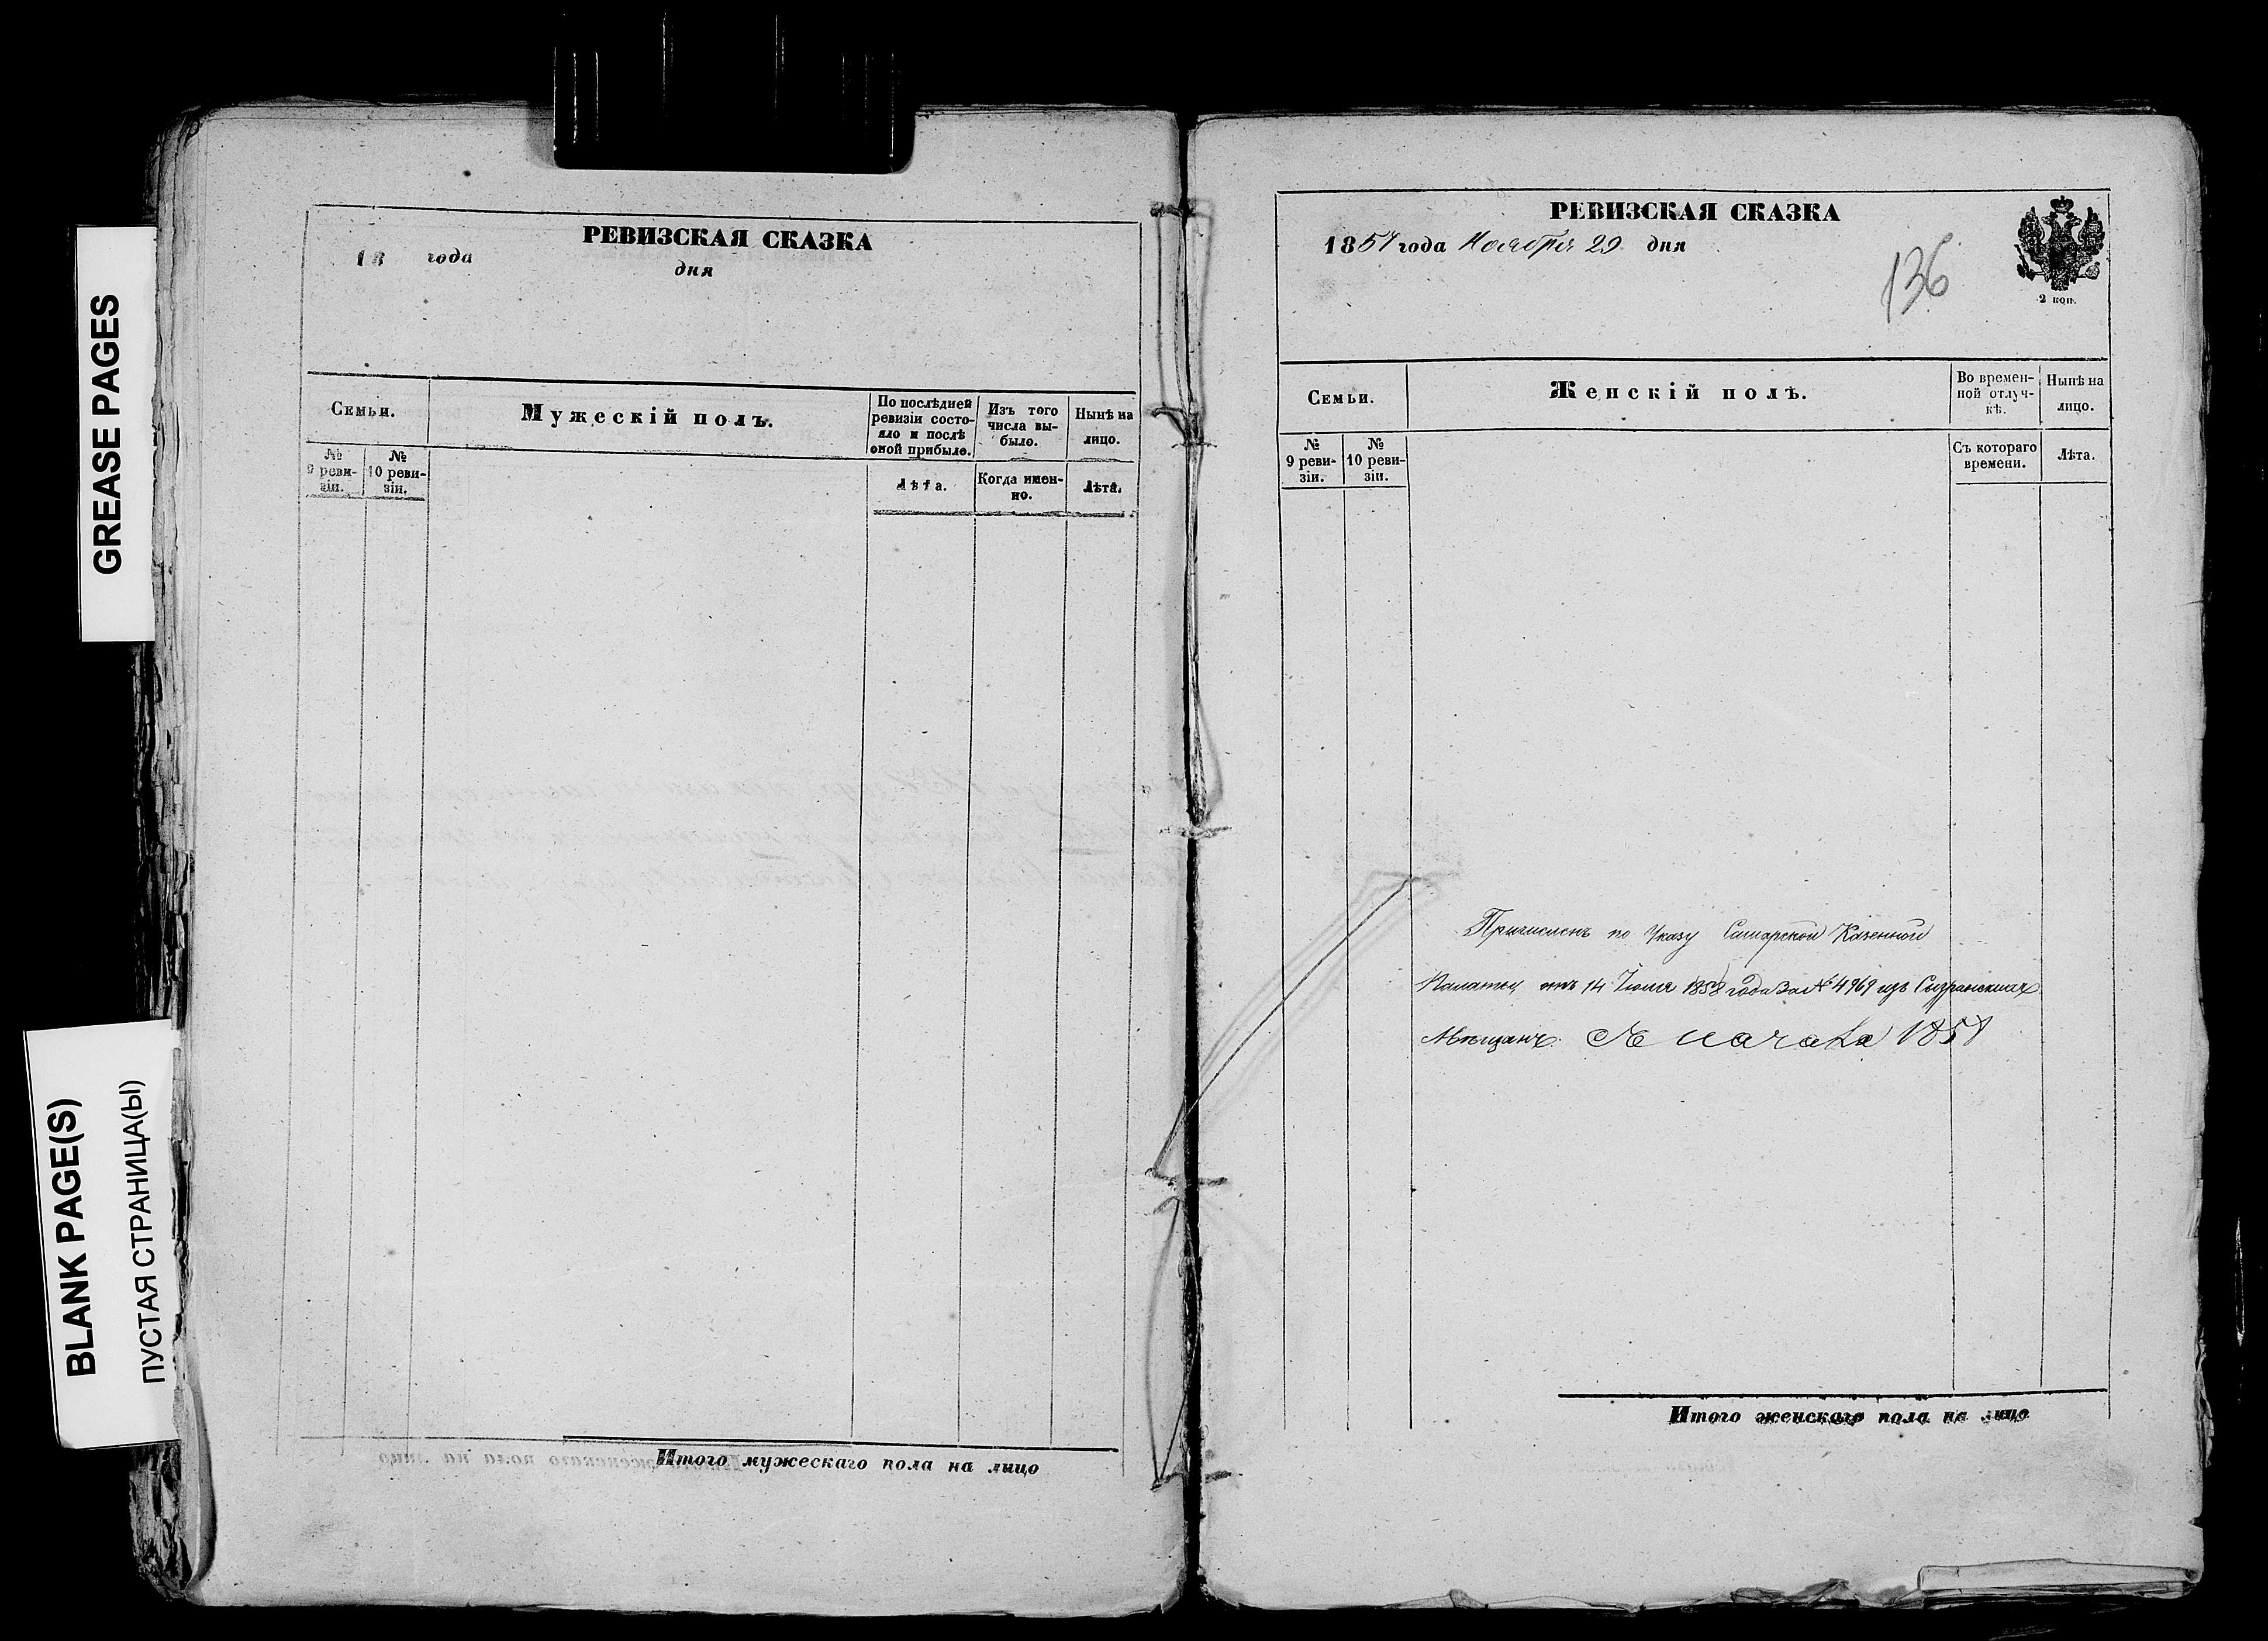 GREASE PAGES
BLANK PAGE(S)
ПУСТАЯ СТРАНИЦА(Ы)
РЕВИЗСКАЯ СКАЗКА
18 года дня
Семьи.
Мужескій полъ.
По послѣдней ревизіи состо-
яло и послѣ оной прибыло.
Изъ того числа вы-
было.
Нынѣ на лицо.
№ 9 реви-
зіи.
№ 10 реви-
зіи.
Лѣта.
Когда имен-
но.
Лѣта.
Итого мужескаго пола на лицо
РЕВИЗСКАЯ СКАЗКА
1857 года Ноября 29 дня
136
2 коп.
Семьи.
Женскій полъ.
Во времен-
ной отлуч-
кѣ.
Нынѣ на лицо.
№ 9 реви-
зіи.
№ 10 реви-
зіи.
Съ котораго времени.
Лѣта.
Причисленъ по Указу Самарской Казенной
Палаты отъ 14 Іюля 1858 года за № 4969 изъ Сызранскихъ
Мѣщанъ. Съ начала 1858
Итого женскаго пола на лицо